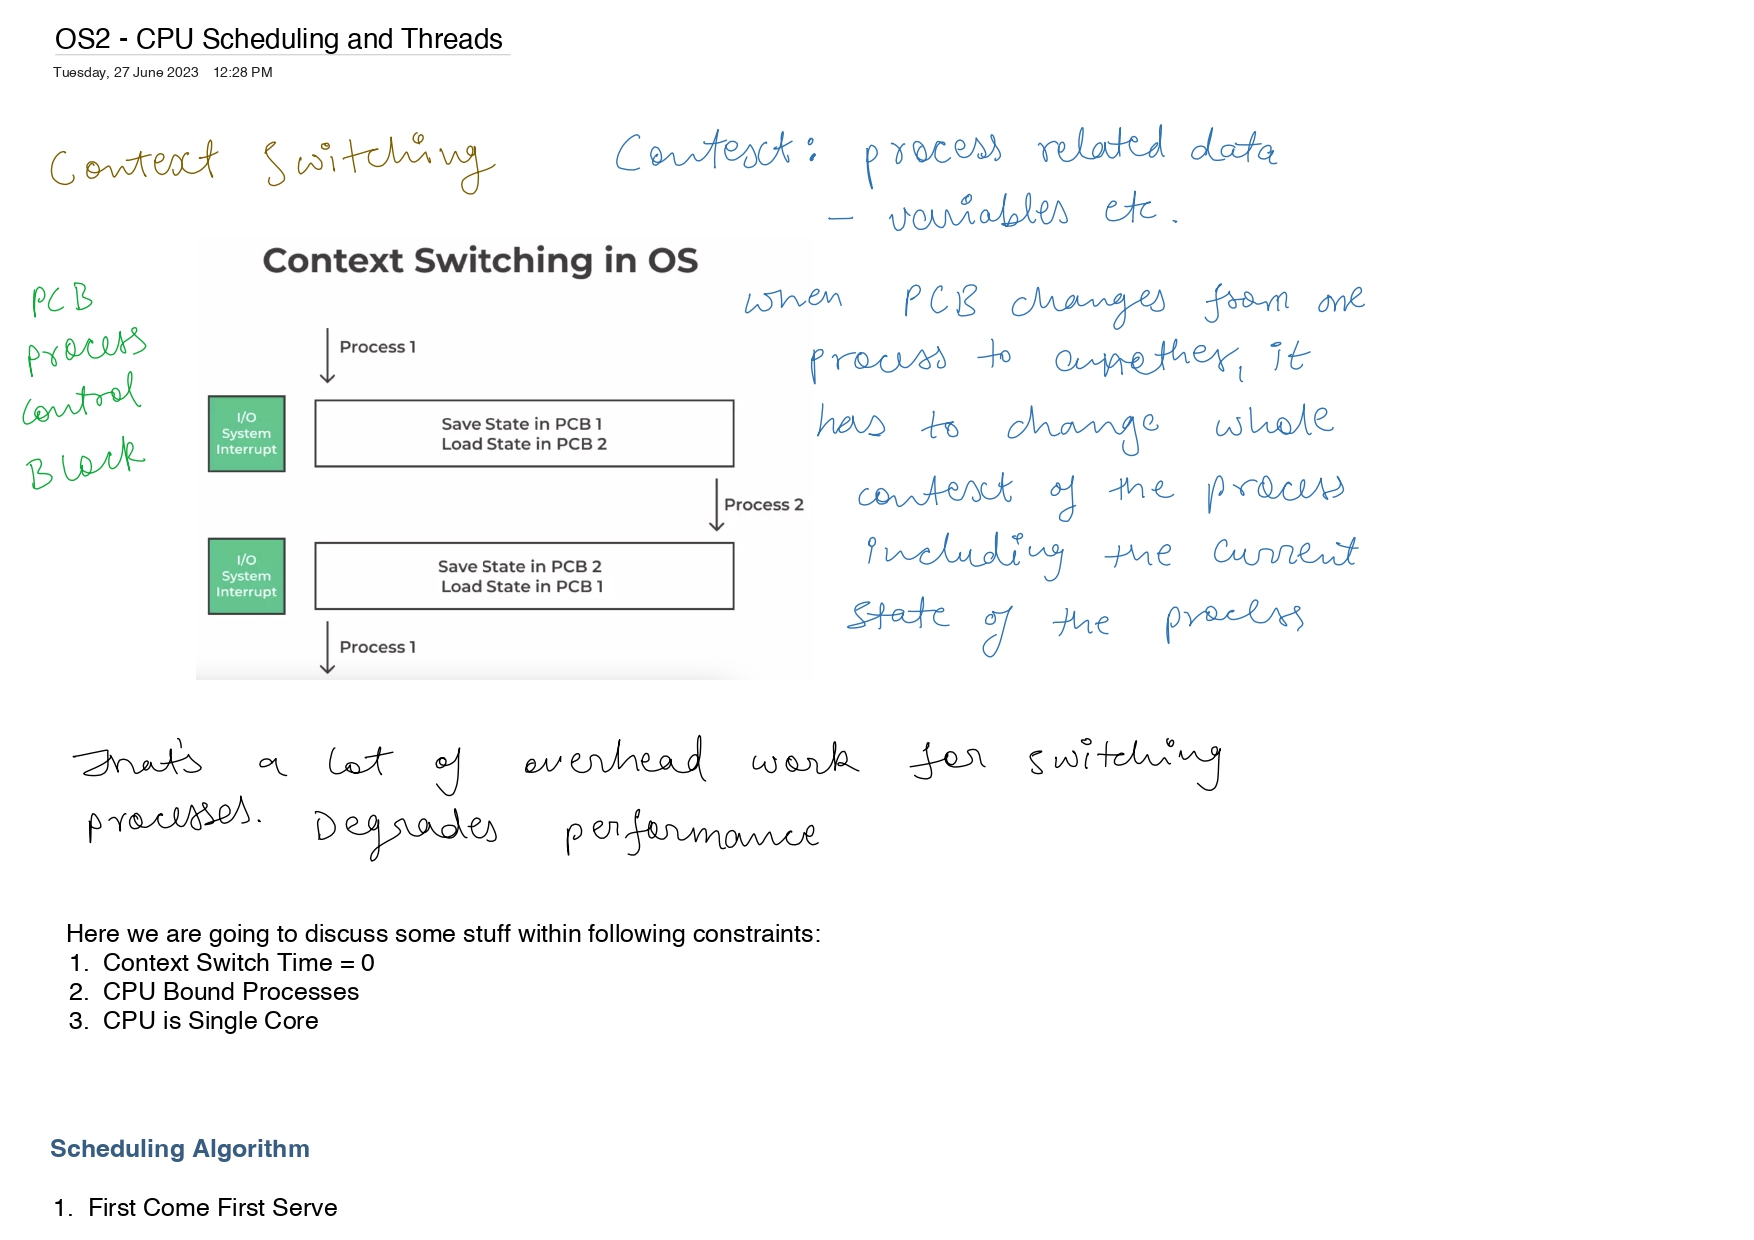 OS2 - CPU Scheduling and Threads
Tuesday, 27 June 2023 12:28 PM
Context Switching
Context: process related data
- variables etc.
Context Switching in OS
PCB
Process
Control
Block
Process 1
I/O
System
Interrupt
Save State in PCB 1
Load State in PCB 2
Process 2
I/O
System
Interrupt
Save State in PCB 2
Load State in PCB 1
Process 1
when PCB changes from one
process to another, it
has to change whole
context of the process
including the current
state of the process
That's a lot of overhead work for switching
processes. Degrades performance
Here we are going to discuss some stuff within following constraints:
1. Context Switch Time = 0
2. CPU Bound Processes
3. CPU is Single Core
Scheduling Algorithm
1. First Come First Serve